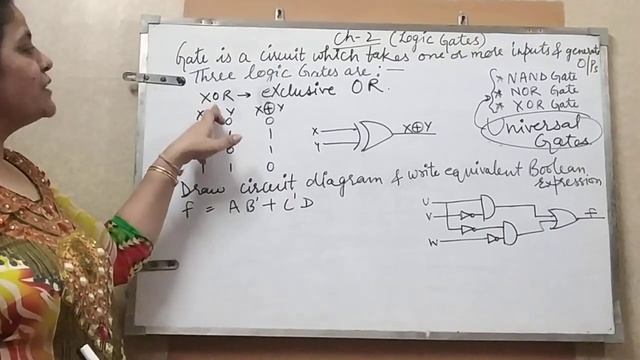 Ch-2 (Logic Gates)
Gate is a circuit which takes one or more inputs & generate O/Ps
Three logic Gates are :-
* NAND Gate
* NOR Gate
* XOR Gate
Universal Gates
XOR → eXclusive OR.
X Y X⊕Y
0 0
1 1
1
1 1 0
X
Y
X⊕Y
Draw circuit diagram & write equivalent Boolean Expression
f = AB' + C'D
U
V
W
f